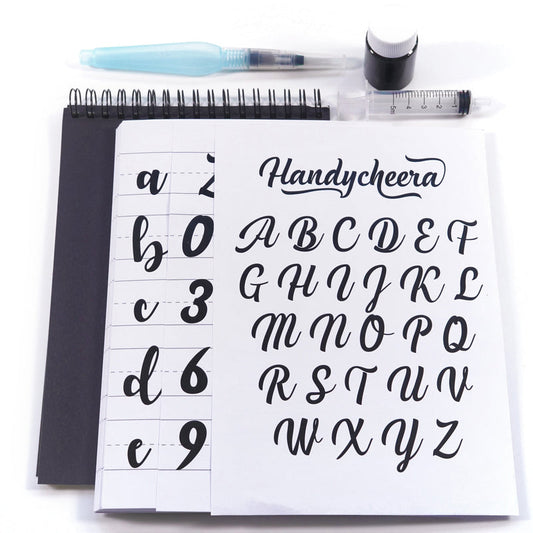 Handycheera
A B C D E F
G H I J K L
M N O P Q
R S T U V
W X Y Z
a
b 0
c 3
d 6
e 9